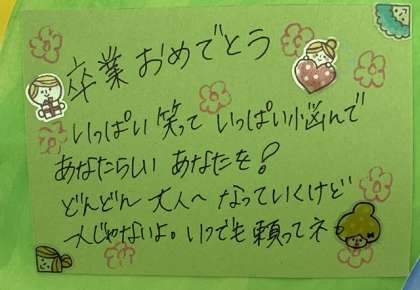 卒業おめでとう
いっぱい笑って いっぱい悩んで
あなたらしい あなたを!
どんどん 大人へ なっていくけど
一人じゃないよ。いつでも頼ってネ。